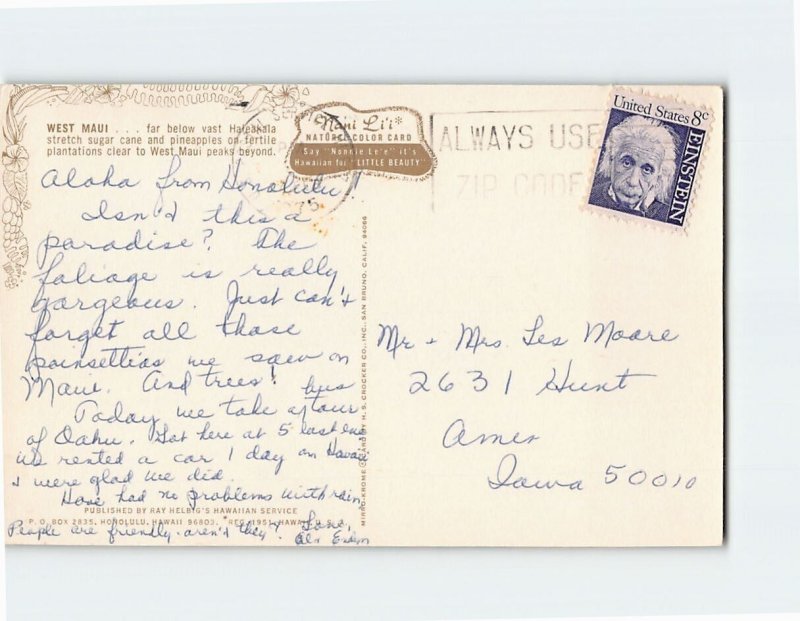 WEST MAUI . . . far below vast Haleakala
stretch sugar cane and pineapples on fertile
plantations clear to West Maui peaks beyond.
Nani Li'i*
NATURAL COLOR CARD
Say "Nonnie Le'e" it's
Hawaiian for "LITTLE BEAUTY"
ALWAYS USE
ZIP CODE
United States 8c
EINSTEIN
Aloha from Honolulu!
Isn't this a
paradise? The
foliage is really
gorgeous. Just can't
forget all those
poinsettias we saw on
Maui. And trees!
bus
Today we take a tour
of Oahu. Got here at 5 last eve
We rented a car 1 day on Hawaii
+ were glad we did.
Have had no problems with rain.
PUBLISHED BY RAY HELBIG'S HAWAIIAN SERVICE
P. O. BOX 2835, HONOLULU, HAWAII 96803.
People are friendly - aren't they? Love,
MIRRO-KROME ® CARD BY H. S. CROCKER CO., INC., SAN BRUNO, CALIF. 94066
Mr + Mrs. Les Moore
2631 Hunt
Ames
Iowa 50010